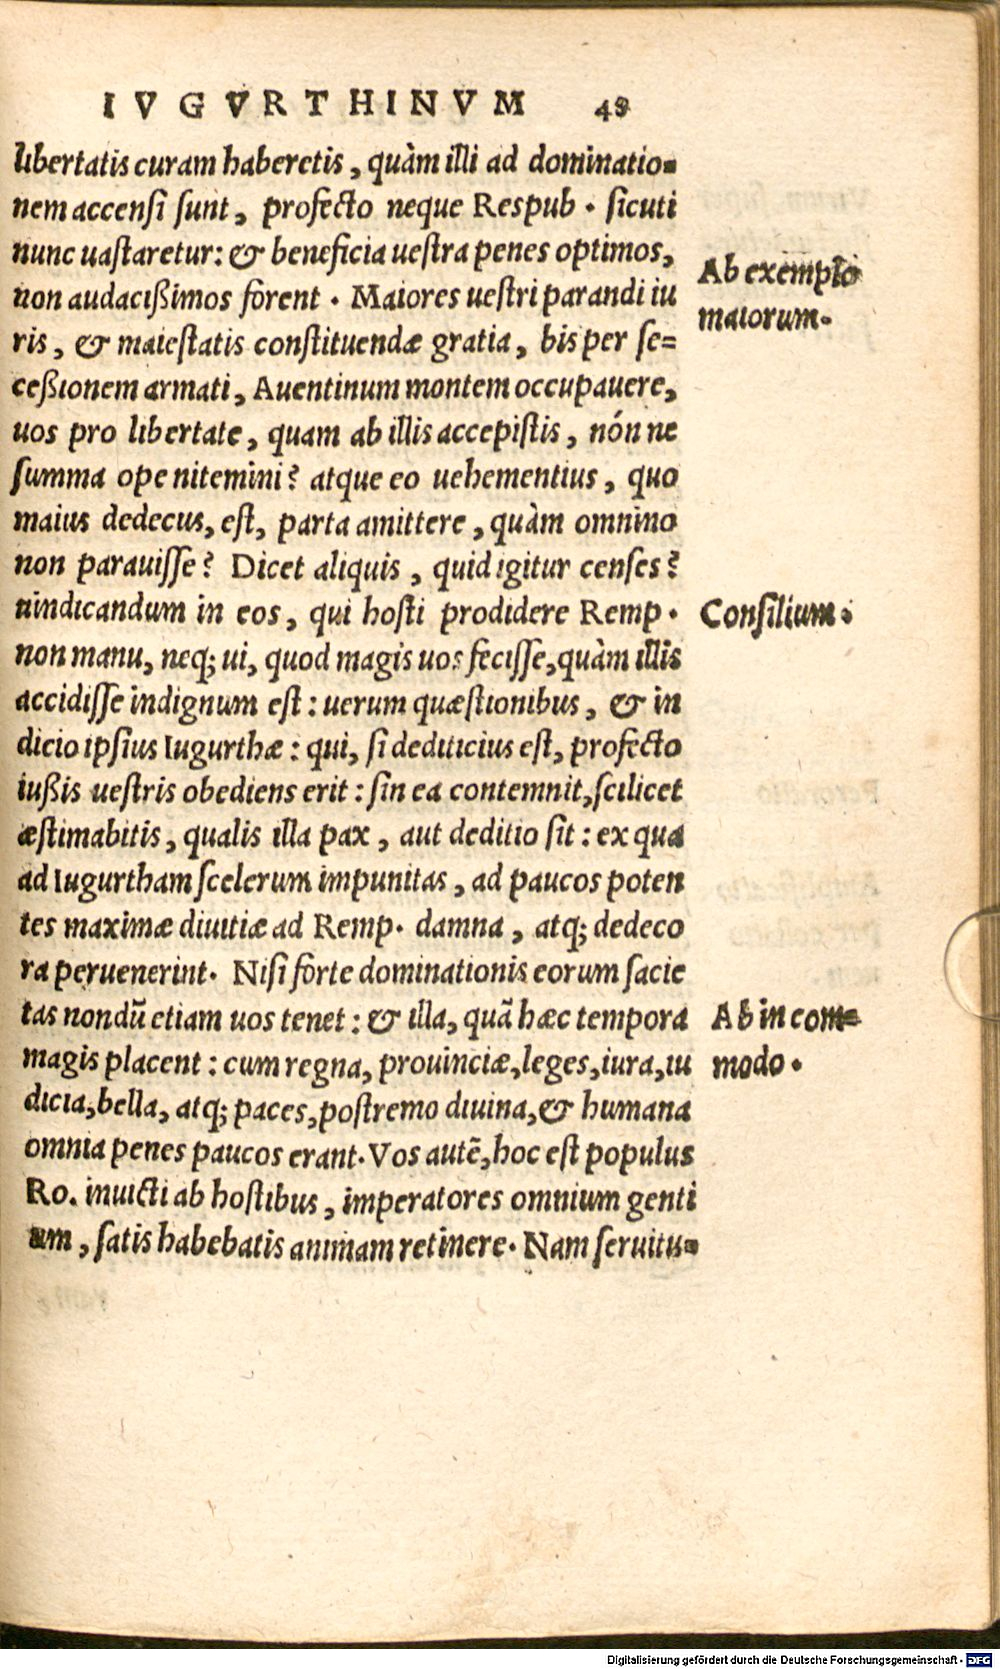 IVGVRTHINVM 49
libertatis curam haberetis, quàm illi ad dominatio-
nem accensi sunt, profecto neque Respub. sicuti
nunc uastaretur: & beneficia uestra penes optimos,
non audacißimos forent. Maiores uestri parandi iu
ris, & maiestatis constituendæ gratia, bis per se=
ceßionem armati, Auentinum montem occupauere,
uos pro libertate, quam ab illis accepistis, nón ne
summa ope nitemini? atque eo uehementius, quo
maius dedecus, est, parta amittere, quàm omnino
non parauisse? Dicet aliquis, quid igitur censes?
uindicandum in eos, qui hosti prodidere Remp.
non manu, neq; ui, quod magis uos fecisse, quàm illis
accidisse indignum est: uerum quæstionibus, & in
dicio ipsius Iugurthæ: qui, si dediticius est, profecto
iußis uestris obediens erit: sin ea contemnit, scilicet
æstimabitis, qualis illa pax, aut deditio sit: ex qua
ad Iugurtham scelerum impunitas, ad paucos poten
tes maximæ diuitiæ ad Remp. damna, atq; dedeco
ra peruenerint. Nisi forte dominationis eorum sacie
tas nondũ etiam uos tenet: & illa, quã hæc tempora
magis placent: cum regna, prouinciæ, leges, iura, iu
dicia, bella, atq; paces, postremo diuina, & humana
omnia penes paucos erant. Vos autẽ, hoc est populus
Ro. inuicti ab hostibus, imperatores omnium genti
um, satis habebatis animam retinere. Nam seruitu-
Ab exemplo
maiorum.
Consilium.
Ab in com=
modo.
Digitalisierung gefördert durch die Deutsche Forschungsgemeinschaft - DFG